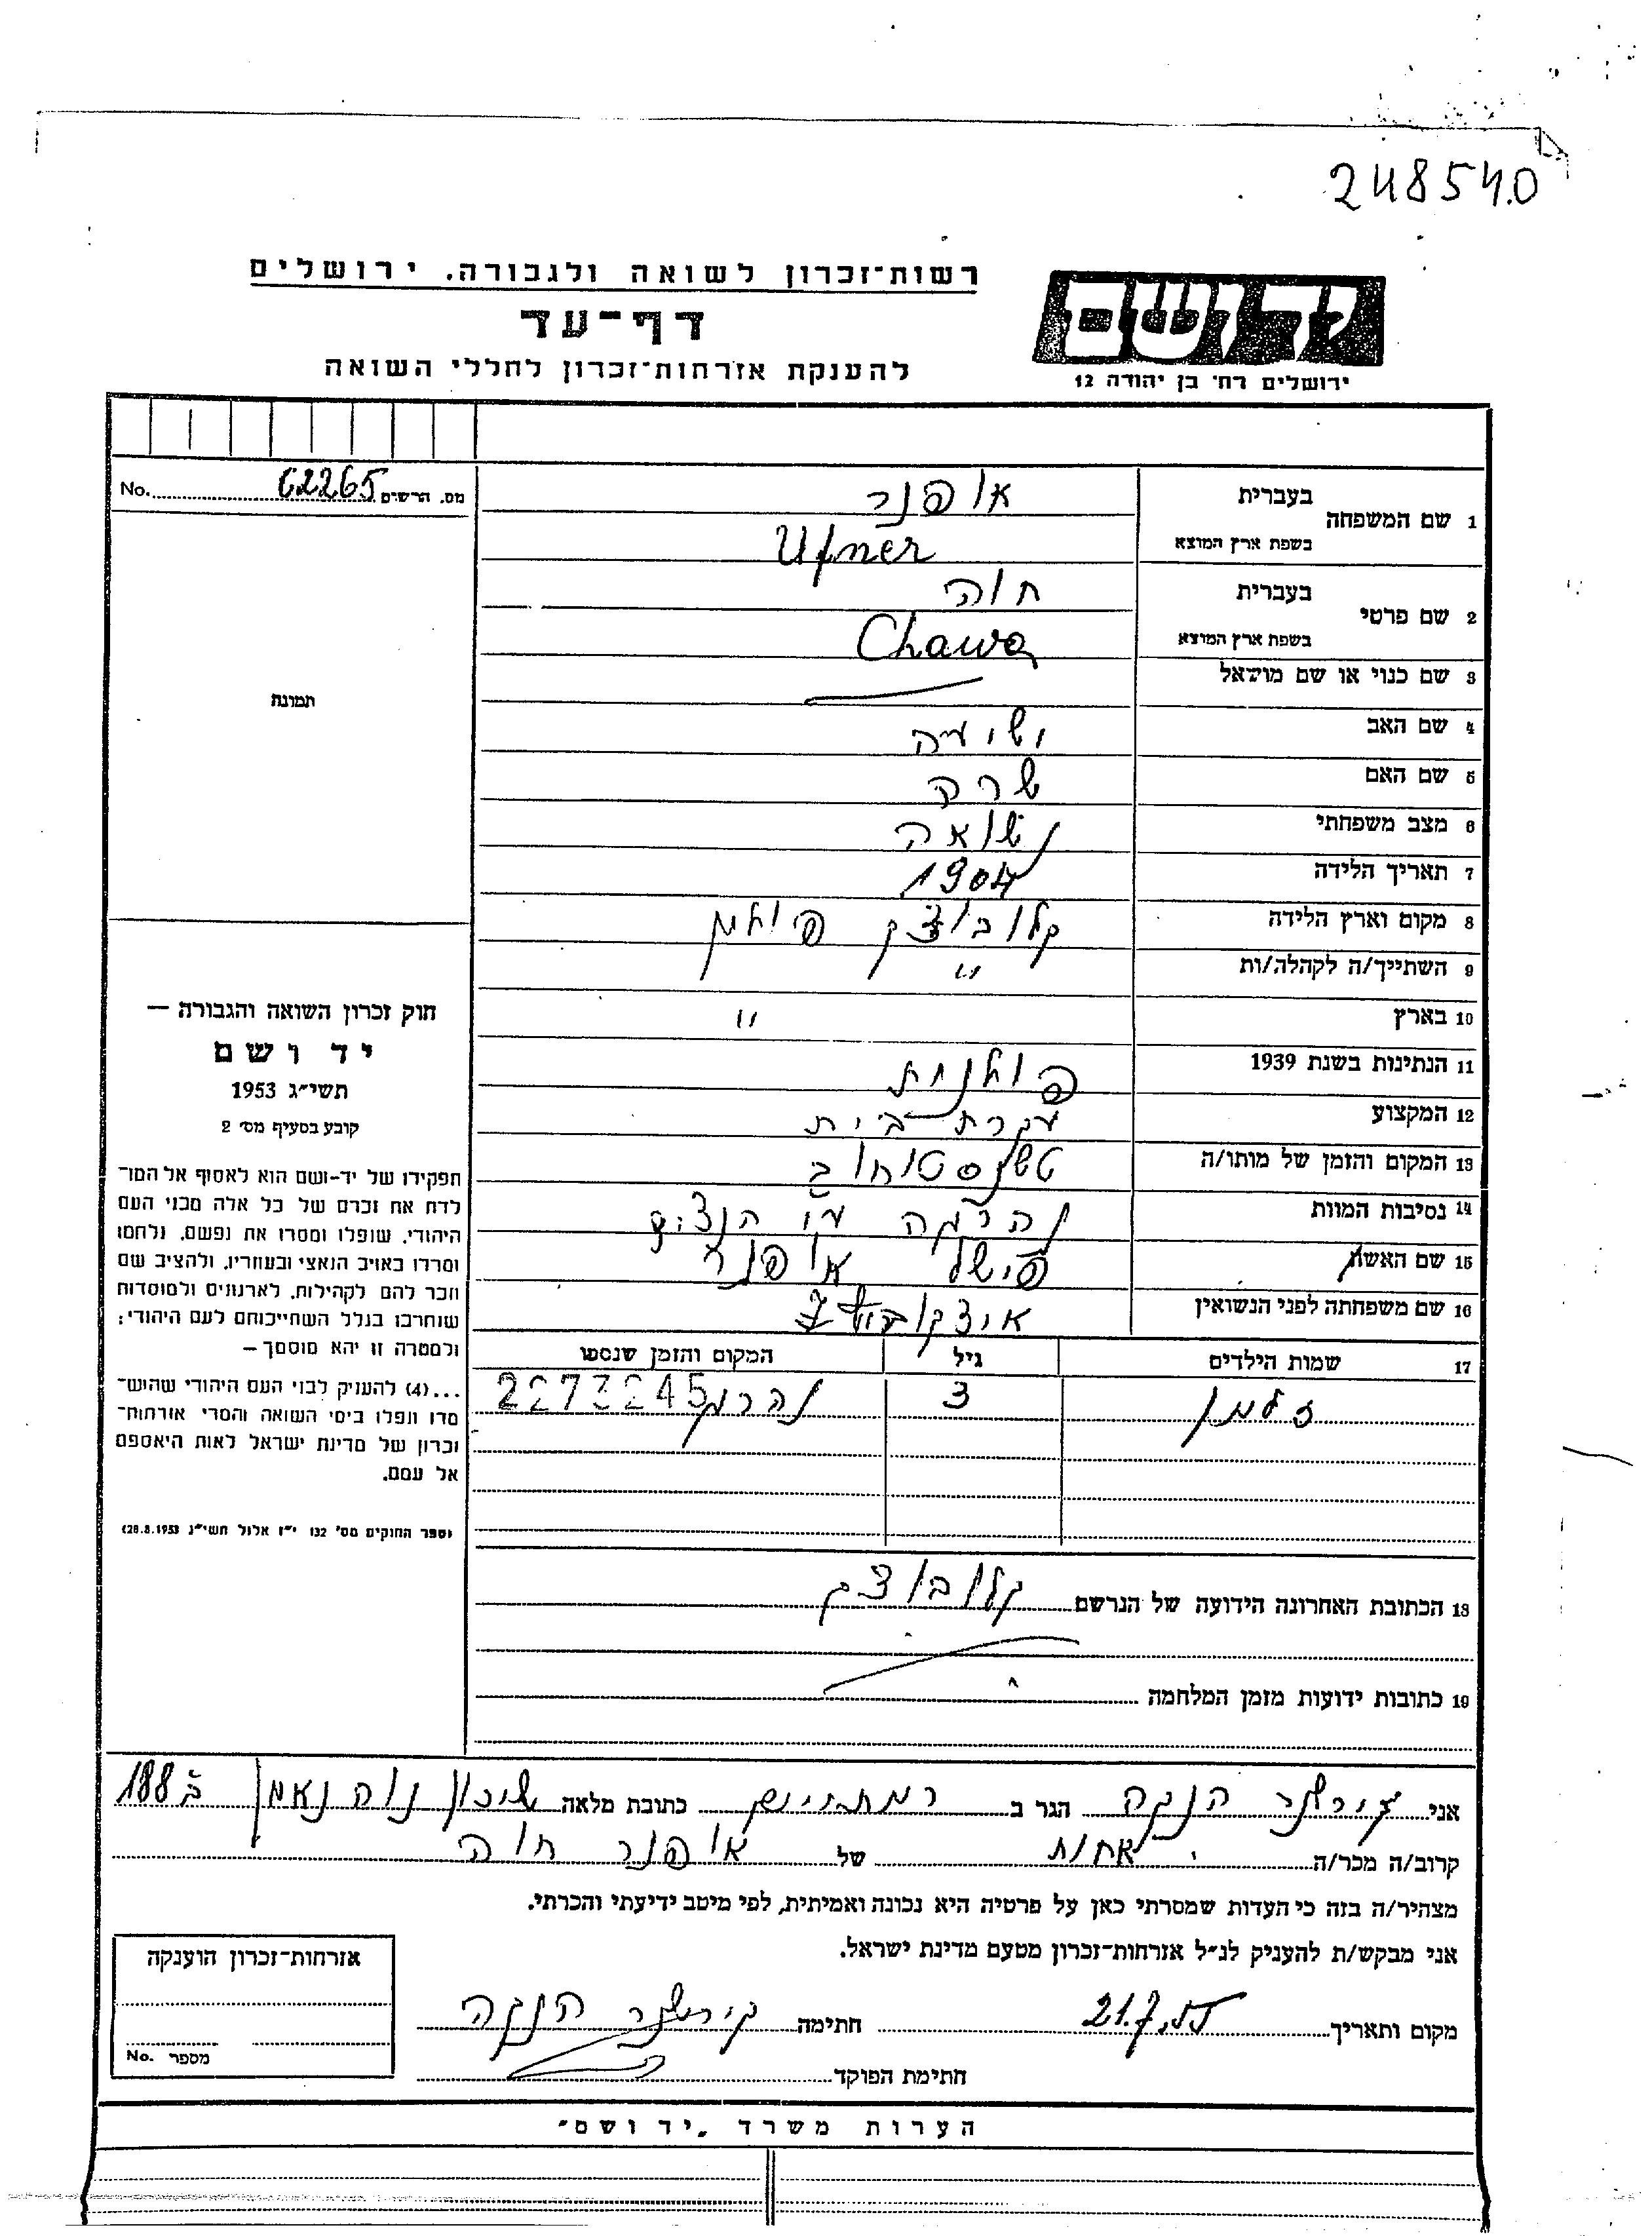 248540
רשות־זכרון לשואה ולגבורה. ירושלים
דף־עד
להענקת אזרחות־זכרון לחללי השואה
יד ושם
ירושלים רח' בן יהודה 12
מס. הרשים 62265 No.
1 שם המשפחה בעברית אופנר
בשפת ארץ המוצא Ufner
2 שם פרטי בעברית חוה
בשפת ארץ המוצא Chawa
3 שם כנוי או שם מושאל
4 שם האב ישעיה
5 שם האם שרה
6 מצב משפחתי נשואה
7 תאריך הלידה 1904
8 מקום וארץ הלידה קלובוצק פולין
9 השתייך/ה לקהלה/ות "
10 בארץ "
11 הנתינות בשנת 1939 פולנית
12 המקצוע עקרת בית
13 המקום והזמן של מותו/ה טשנסטוחוב
14 נסיבות המוות נהרגה ע"י הנצים
15 שם האשה פישל אופנר
16 שם משפחתה לפני הנשואין
17 שמות הילדים גיל המקום והזמן שנספו
זלמן 3 נהרג 2273245
18 הכתובת האחרונה הידועה של הנרשם קלובוצק
19 כתובות ידועות מזמן המלחמה
תמונה
חוק זכרון השואה והגבורה —
יד ושם
תשי"ג 1953
קובע בסעיף מס' 2
תפקידו של יד-ושם הוא לאסוף אל המו־
לדת את זכרם של כל אלה מבני העם
היהודי, שנפלו ומסרו את נפשם, נלחמו
ומרדו באויב הנאצי ובעוזריו, ולהציב שם
וזכר להם לקהילות, לארגונים ולמוסדות
שנחרבו בגלל השתייכותם לעם היהודי;
ולמטרה זו יהא מוסמך —
...(4) להעניק לבני העם היהודי שהוש־
מדו ונפלו בימי השואה והמרי אזרחות־
זכרון של מדינת ישראל לאות היאספם
אל עמם.
(ספר החוקים מס' 132 י"ז אלול תשי"ג 28.8.1953)
אני קירשנר הנקה הגר ב רמתיים כתובת מלאה שיכון נוה נאמן ב 188
קרוב/ה מכר/ה אחות של אופנר חוה
מצהיר/ה בזה כי העדות שמסרתי כאן על פרטיה היא נכונה ואמיתית, לפי מיטב ידיעתי והכרתי.
אני מבקש/ת להעניק לנ"ל אזרחות־זכרון מטעם מדינת ישראל.
מקום ותאריך 21.7.55 חתימה קירשנר הנקה
חתימת הפוקד
אזרחות־זכרון הוענקה
מספר No.
הערות משרד „יד ושם"